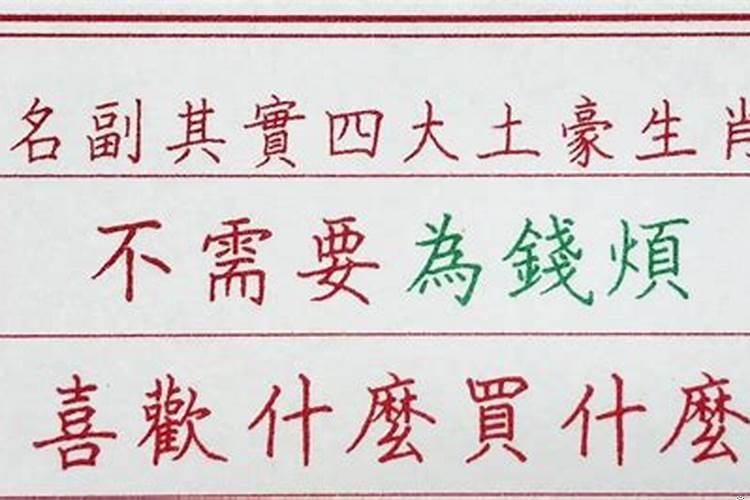 名副其實四大土豪生肖
不需要為錢煩
喜歡什麼買什麼